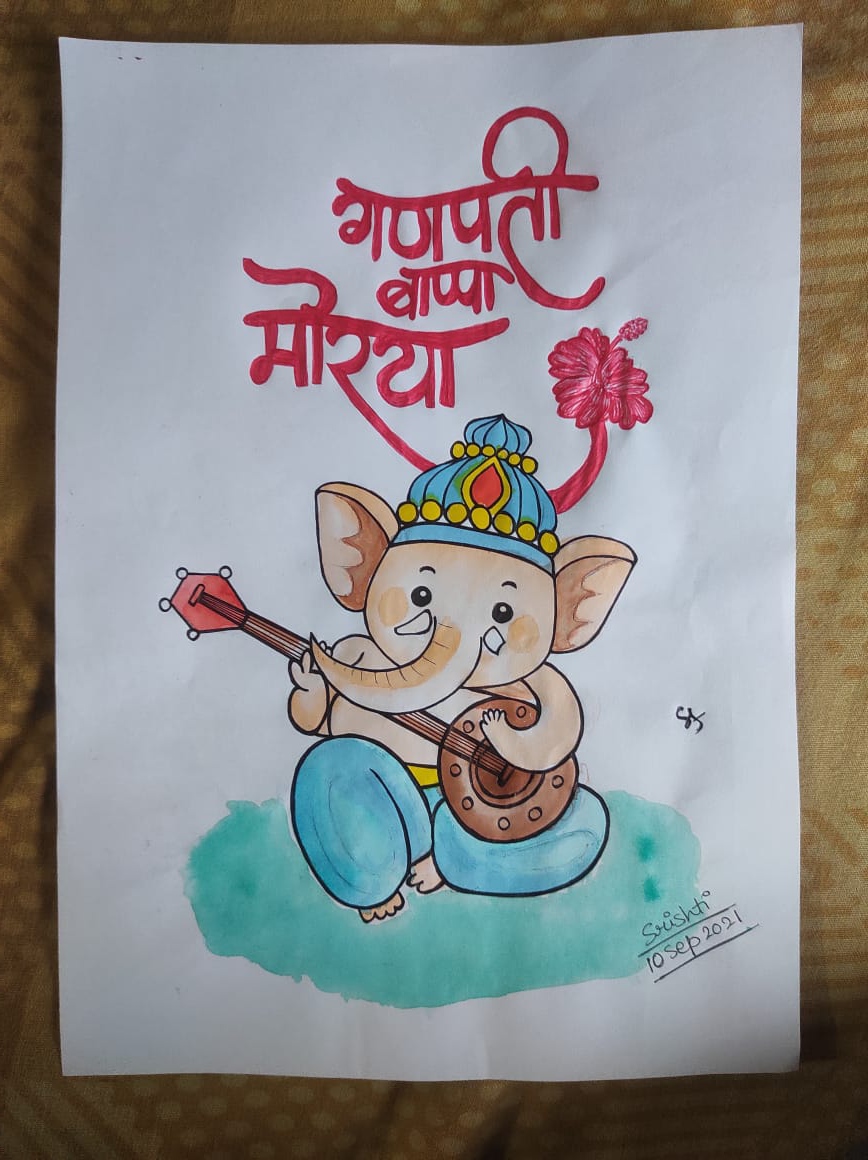 गणपती
बाप्पा
मोरया
Srishti
10 Sep 2021